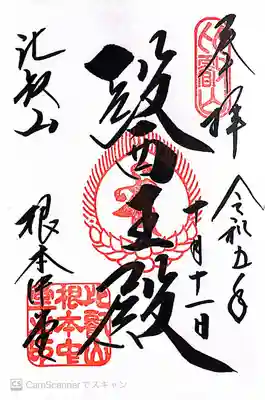 奉拝
令和五年
十月十一日
醫王殿
比叡山
根本中堂
比叡山
根本中
堂之印
CS CamScannerでスキャン